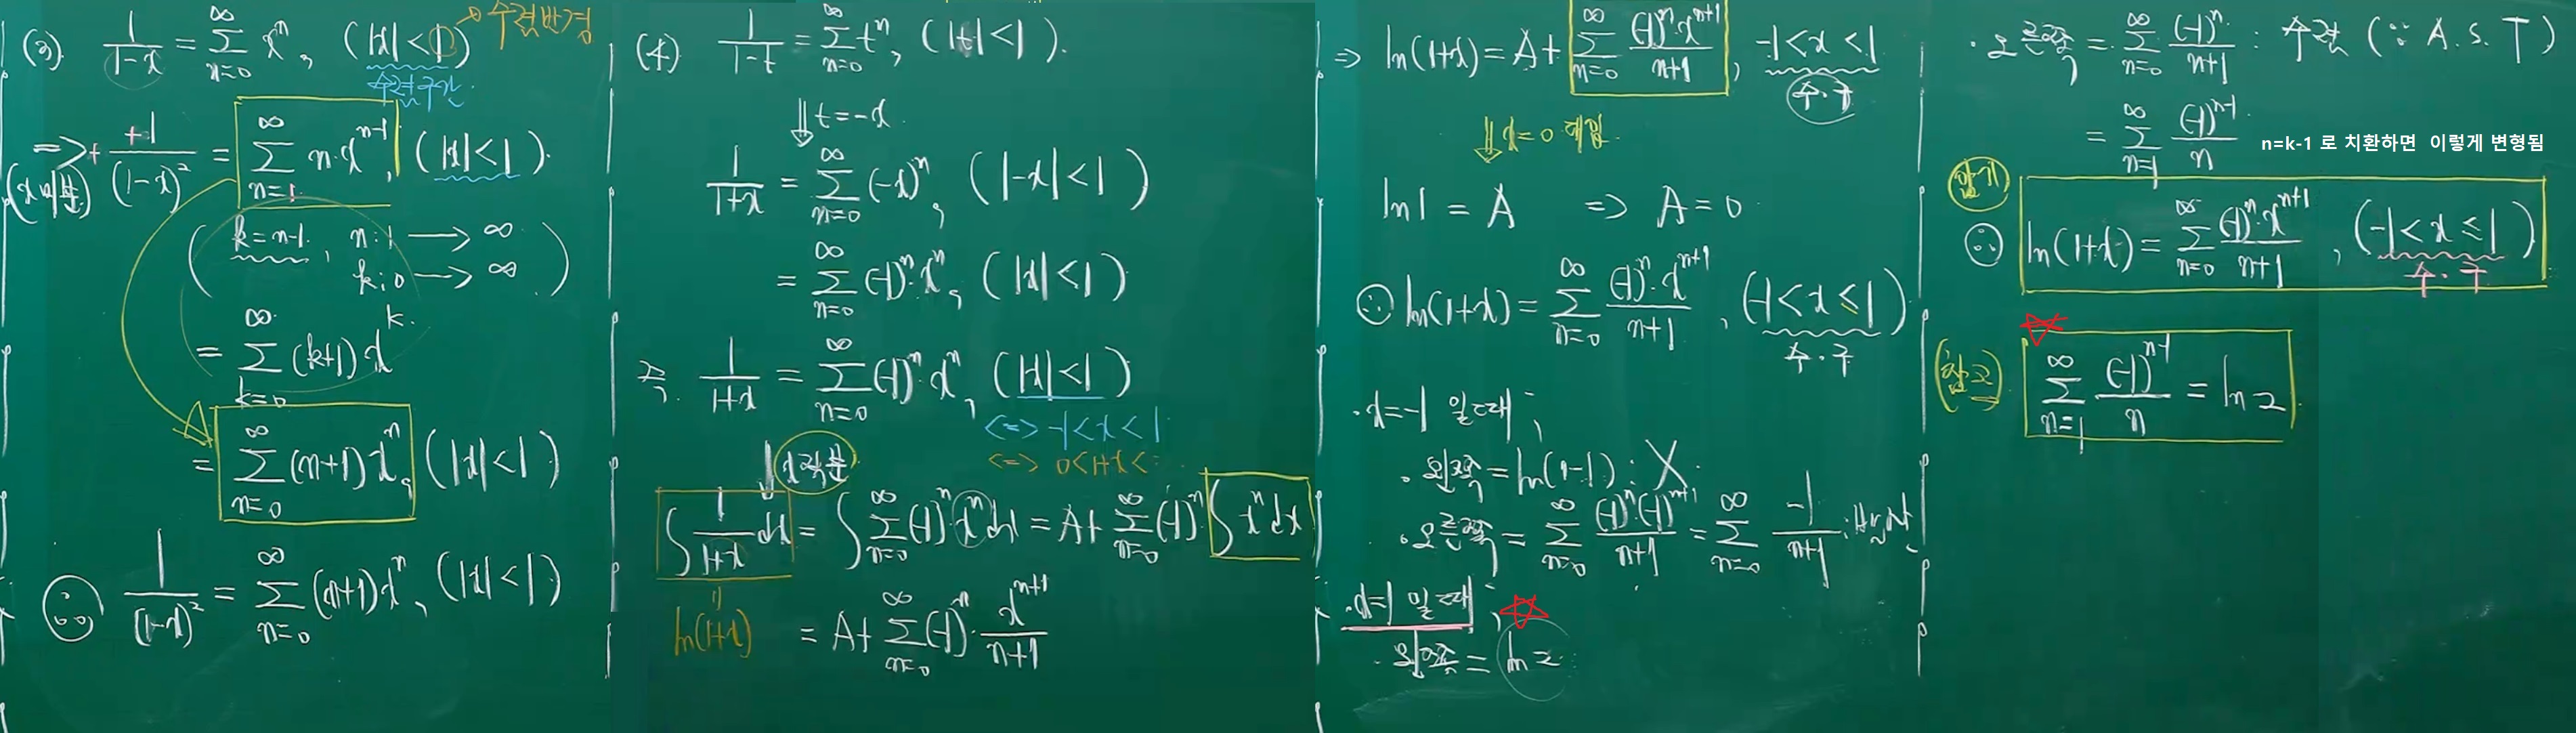 (3) 1/(1-x) = ∑_{n=0}^{∞} x^n, (|x|<1) → 수렴반경
수렴구간
=> (x 미분) + +1/(1-x)^2 = ∑_{n=1}^{∞} n·x^{n-1}, (|x|<1).
(k=n-1, n:1 → ∞
k:0 → ∞)
= ∑_{k=0}^{∞} (k+1) x^k.
= ∑_{n=0}^{∞} (n+1) x^n, (|x|<1)
∴ 1/(1-x)^2 = ∑_{n=0}^{∞} (n+1) x^n, (|x|<1)
(4) 1/(1-t) = ∑_{n=0}^{∞} t^n, (|t|<1).
⇓ t=-x.
1/(1+x) = ∑_{n=0}^{∞} (-x)^n, (|-x|<1)
= ∑_{n=0}^{∞} (-1)^n·x^n, (|x|<1)
즉. 1/(1+x) = ∑_{n=0}^{∞} (-1)^n x^n, (|x|<1)
<=> -1<x<1
<=> 0<1+x<
↓ x적분
∫ 1/(1+x) dx = ∫ ∑_{n=0}^{∞} (-1)^n x^n dx = A+ ∑_{n=0}^{∞} (-1)^n ∫ x^n dx
"
ln(1+x) = A+ ∑_{n=0}^{∞} (-1)^n· x^{n+1}/(n+1)
=> ln(1+x) = A+ ∑_{n=0}^{∞} (-1)^n x^{n+1}/(n+1), -1<x<1
수·구
⇓ x=0 대입
ln1 = A => A=0.
∴ ln(1+x) = ∑_{n=0}^{∞} (-1)^n·x^{n+1}/(n+1), (-1<x≤1)
수·구
·x=-1 일때;
·왼쪽 = ln(1-1) : X.
·오른쪽 = ∑_{n=0}^{∞} (-1)^n(-1)^{n+1}/(n+1) = ∑_{n=0}^{∞} -1/(n+1) : 발산
·x=1 일때;
·왼쪽 = ln 2
·오른쪽 = ∑_{n=0}^{∞} (-1)^n/(n+1) : 수렴 (∵ A.S.T)
= ∑_{n=1}^{∞} (-1)^{n-1}/n
n=k-1 로 치환하면 이렇게 변형됨
암기
∴ ln(1+x) = ∑_{n=0}^{∞} (-1)^n·x^{n+1}/(n+1), (-1<x≤1)
수·구
참고
∑_{n=1}^{∞} (-1)^{n-1}/n = ln 2